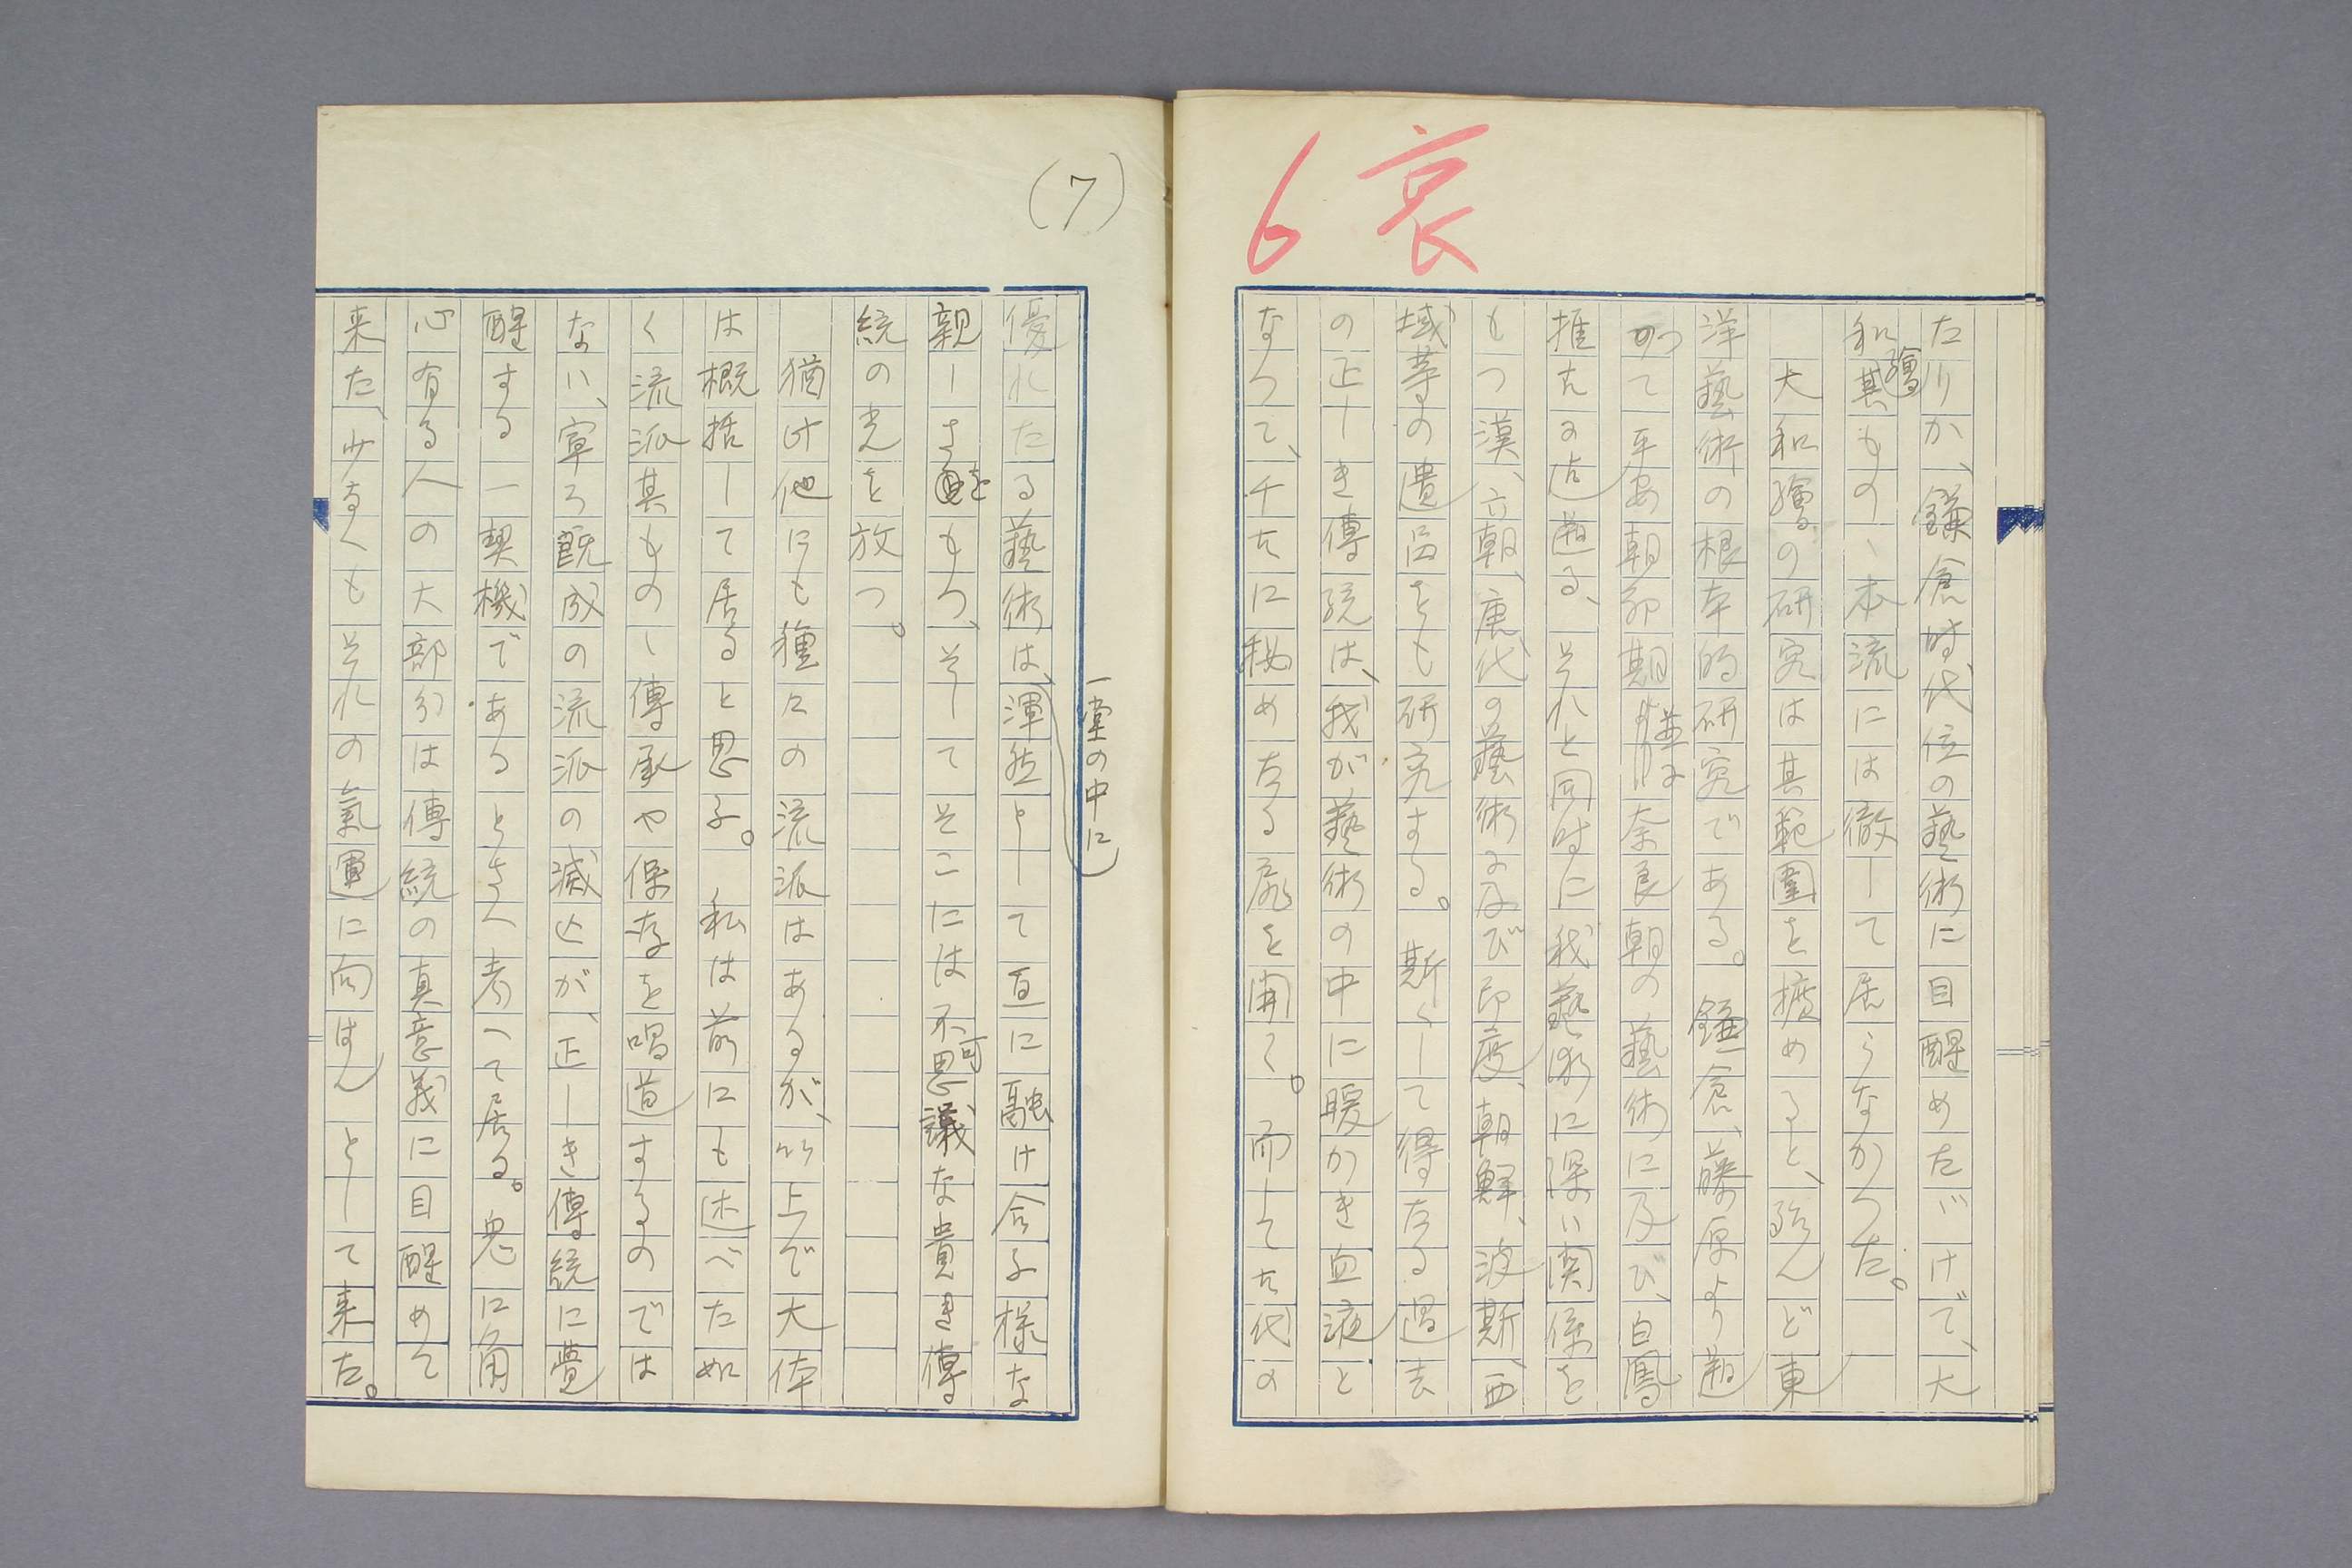 6 裏
たりか、鎌倉時代位の藝術に目醒めたゞけで、大
和繪其ものゝ本流には徹して居らなかつた。
大和繪の研究は其範圍を擴めると、殆んど東
洋藝術の根本的研究である。鎌倉、藤原より遡
つて平安朝初期並に奈良朝の藝術に及び、白鳳
推古に迄遡る、それと同時に我藝術に深い関係を
もつ漢、六朝、唐代の藝術及び印度、朝鮮、波斯、西
域等の遺品をも研究する。斯くして得たる過去
の正しき傳統は、我が藝術の中に暖かき血液と
なつて、千古に秘めたる扉を開く。而して古代の
(7)
優れたる藝術は、一堂の中に渾然として互に融け合ふ様な
親しさをもつ、そしてそこには不可思議な貴き傳
統の光を放つ。
猶此他にも種々の流派はあるが、以上で大体
は概括して居ると思ふ。私は前にも述べた如
く流派其ものゝ傳承や保存を唱道するのでは
ない、寧ろ既成の流派の滅亡が、正しき傳統に覺
醒する一契機であるとさへ考へて居る。兎に角
心有る人の大部分は傳統の真意義に目醒めて
来た、少なくもそれの氣運に向はんとして来た。